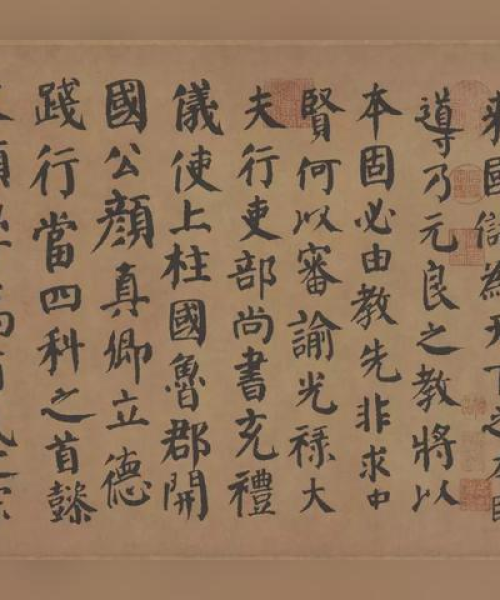 敕國儲為天下之本師
導乃元良之教將以
本固必由教先非求中
賢何以審諭光祿大
夫行吏部尚書充禮
儀使上柱國魯郡開
國公顏真卿立德
踐行當四科之首懿